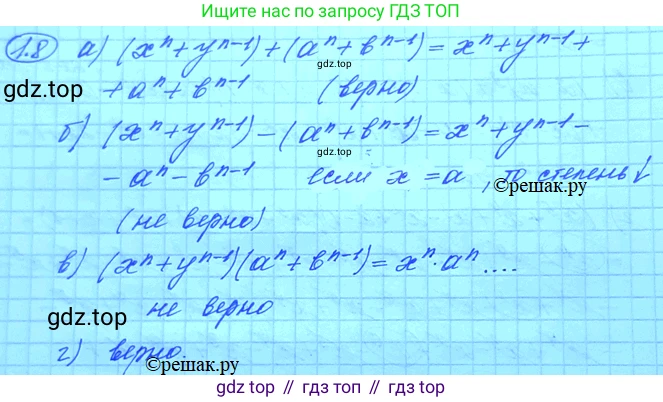 Ищите нас по запросу ГДЗ ТОП
1.8 а) (xⁿ+yⁿ⁻¹)+(aⁿ+bⁿ⁻¹)=xⁿ+yⁿ⁻¹+
+aⁿ+bⁿ⁻¹ (верно)
gdz.top
gdz.top
б) (xⁿ+yⁿ⁻¹)-(aⁿ+bⁿ⁻¹)=xⁿ+yⁿ⁻¹-
gdz.top
-aⁿ-bⁿ⁻¹ если x=a, то степень↓
©решак.ру
(не верно)
в) (xⁿ+yⁿ⁻¹)(aⁿ+bⁿ⁻¹)=xⁿ·aⁿ....
не верно
gdz.top
gdz.top
г) верно.
©решак.ру
gdz.top // гдз топ // гдз.топ